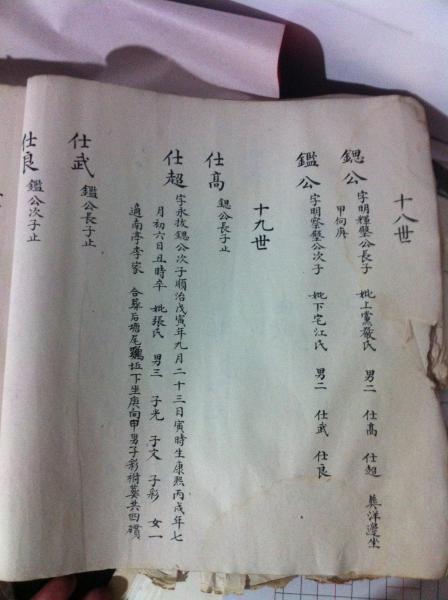 十八世
鍶公 字明輝璧公長子 妣上黨嚴氏 男二 仕高 仕超 英洋邊坐
甲向庚
鑑公 字明察璧公次子 妣下宅江氏 男二 仕武 仕良
十九世
仕高 鍶公長子止
仕超 字永拔鍶公次子順治戊寅年九月二十三日寅時生康熙丙戌年七
月初六日丑時卒 妣張氏 男三 子光 子文 子彩 女一
適南亭李家 合葬后塘尾 坵下坐庚向甲男子彩祔葬共四壙
仕武 鑑公長子止
仕良 鑑公次子止